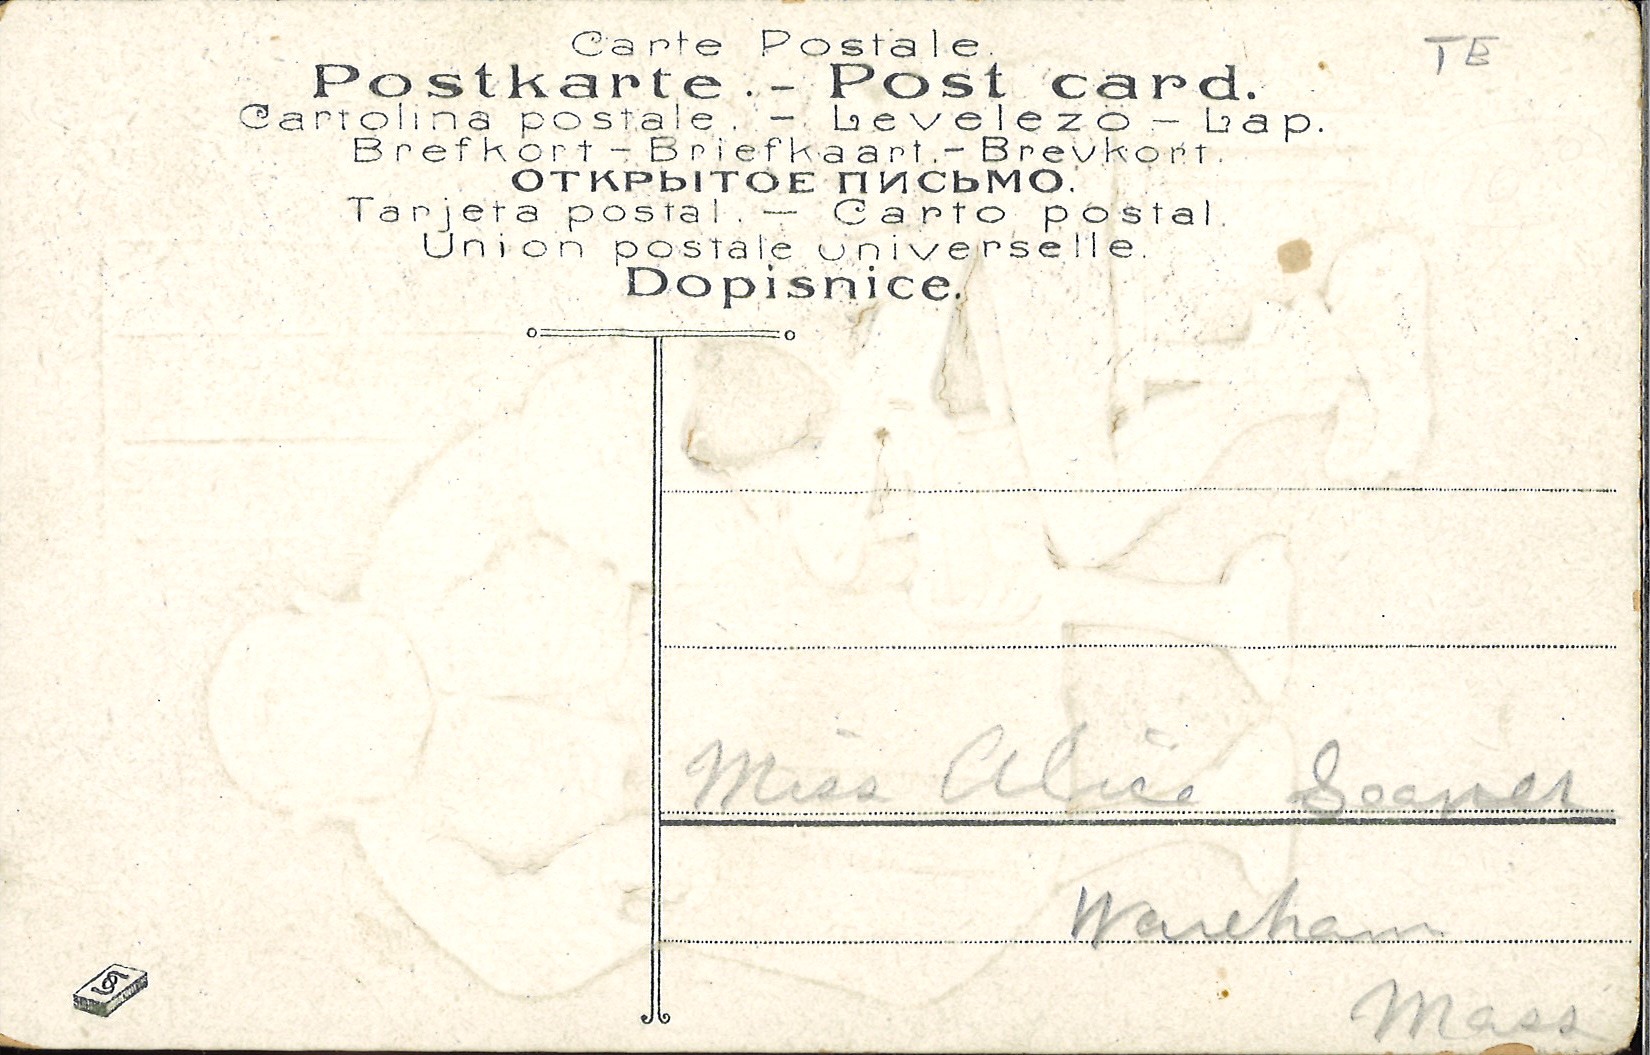 Carte Postale.
TE
Postkarte.- Post card.
Cartolina postale. – Levelezo – Lap.
Brefkort – Briefkaart.– Brevkort.
ОТКРЫТОЕ ПИСЬМО.
Tarjeta postal. — Carto postal.
Union postale universelle.
Dopisnice.
Miss Alice
Wareham
Mass